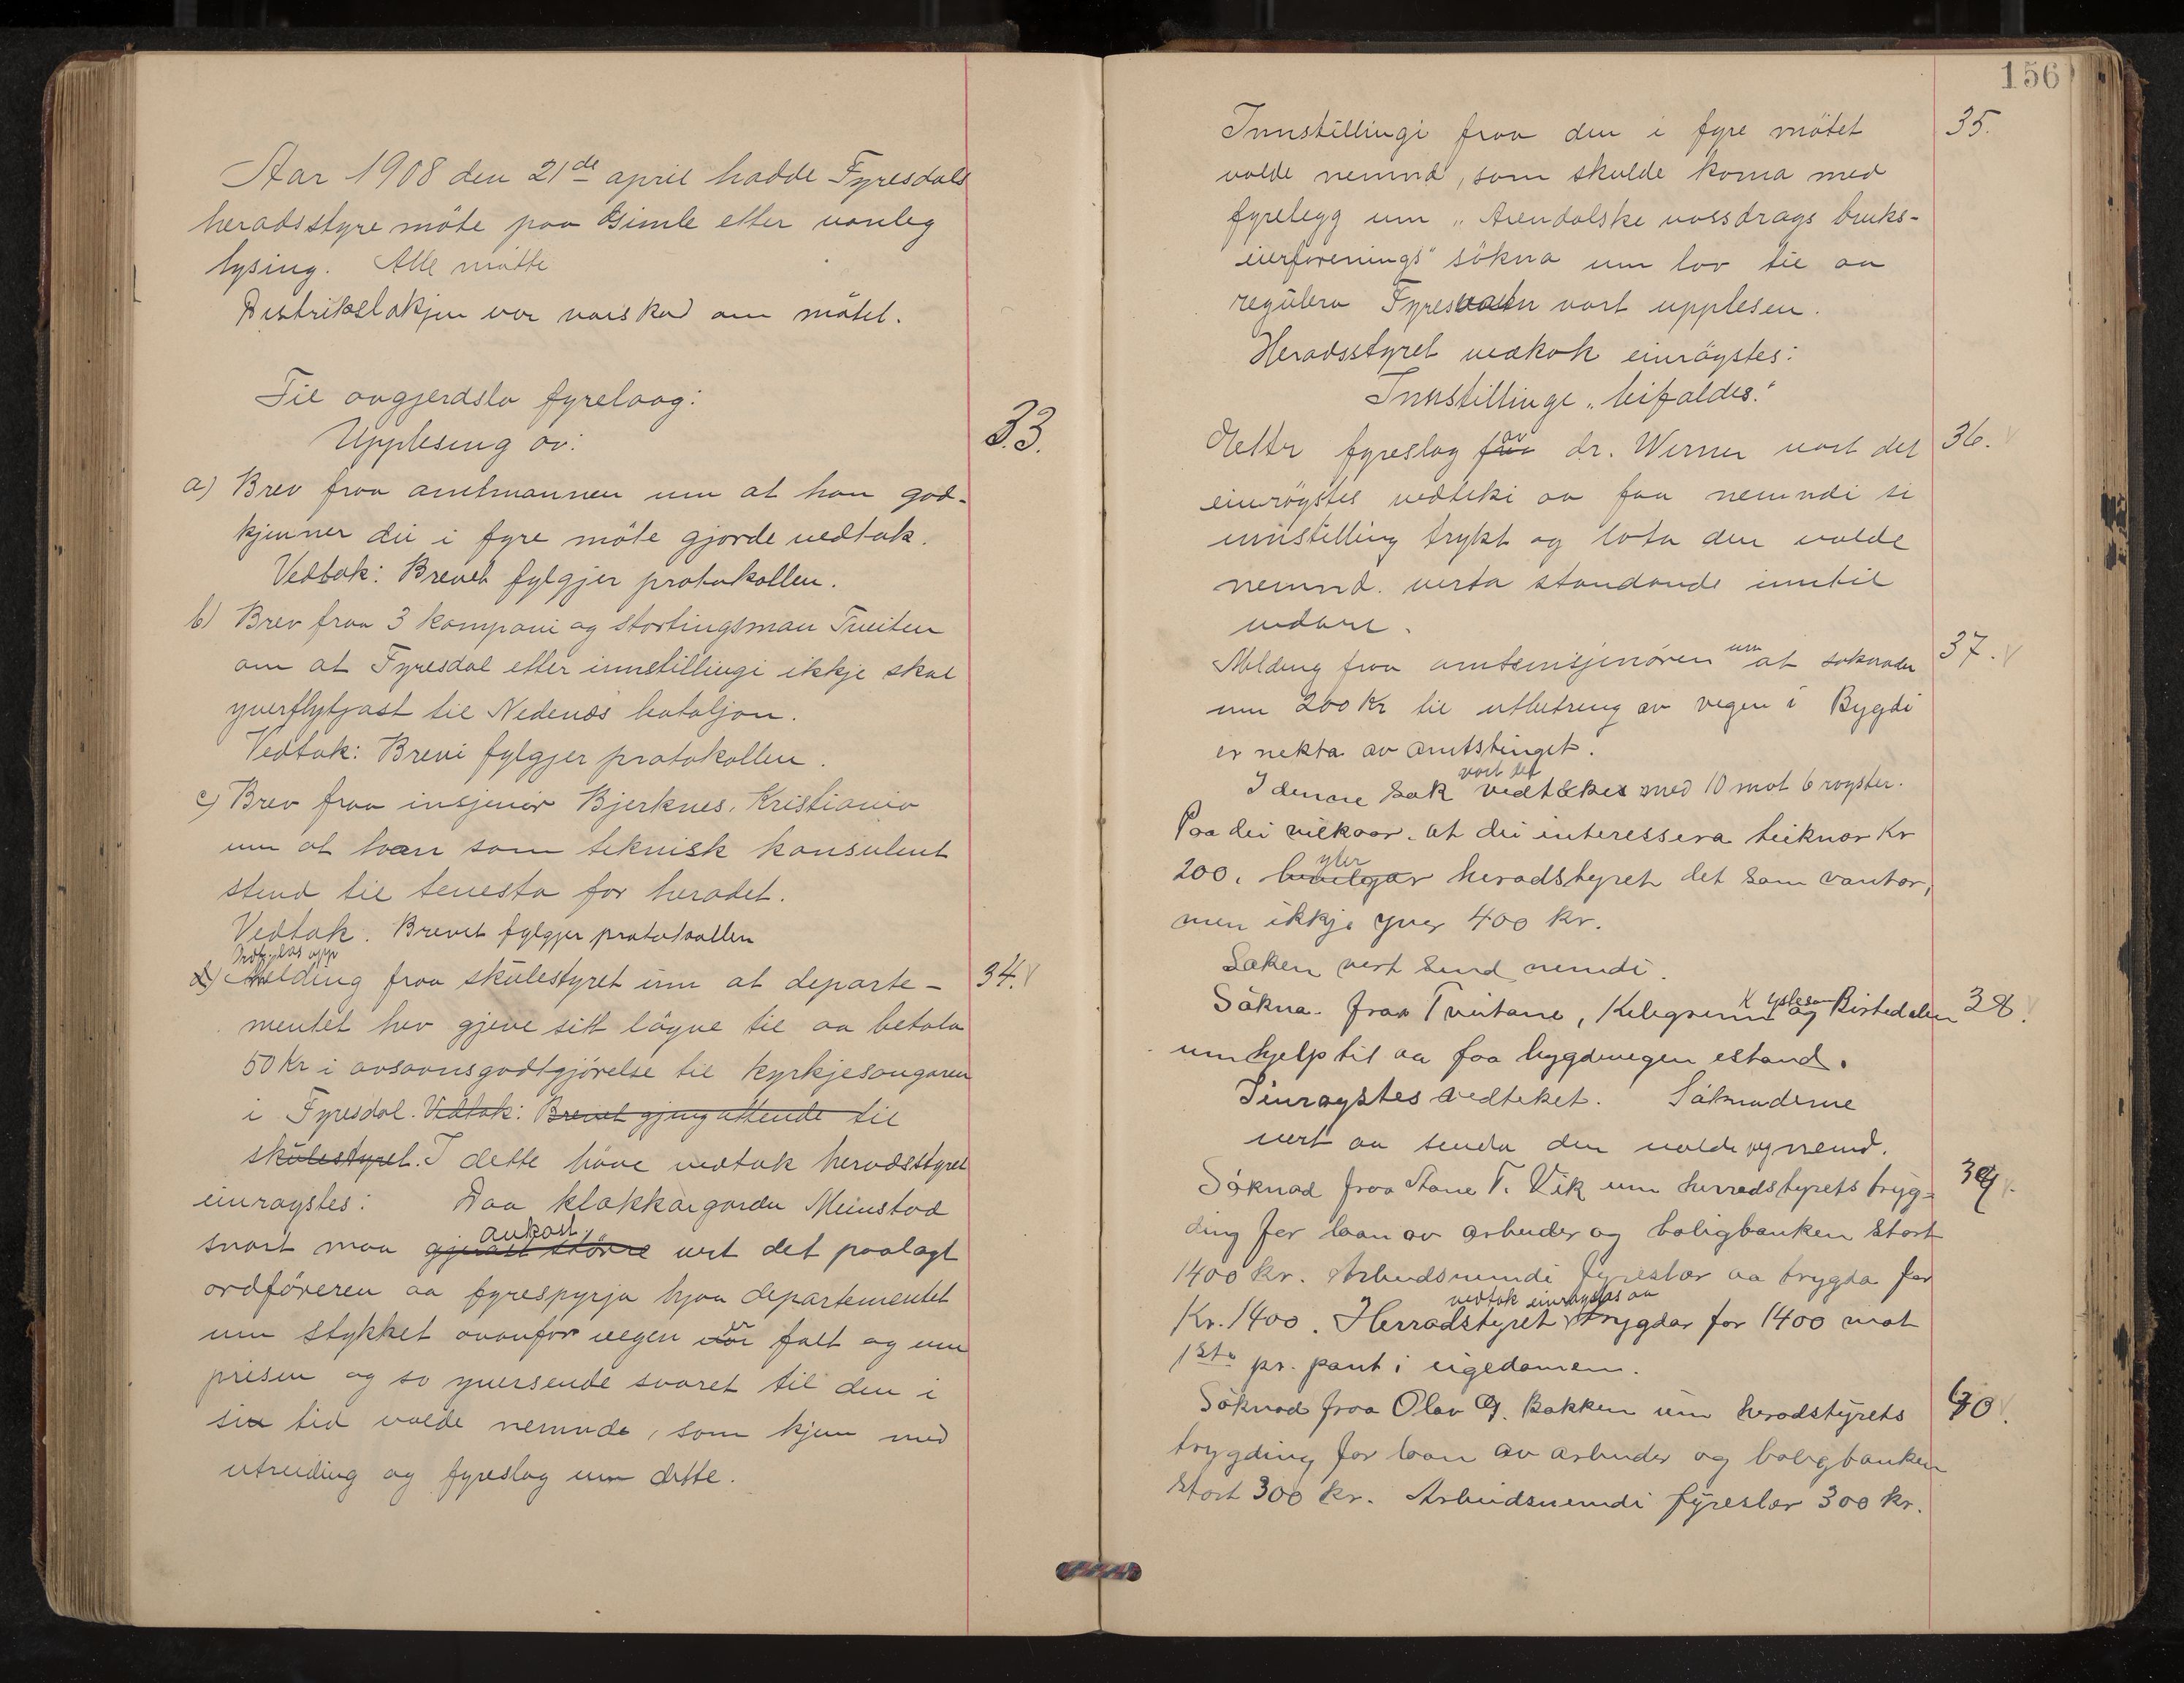 Aar 1908 den 21de april hadde Fyresdals
heradsstyre möte paa Gimle etter vanleg
lysing. Alle mötte
Distriktslækjen var varskad om mötet.
Til avgjerdsla fyrelaag:
33.
Upplesing av:
a) Brev fraa amtmannen um at han god-
kjenner dei i fyre möte gjorde vedtak.
Vedtak: Brevet fylgjer protokollen.
b) Brev fraa 3 kompani og stortingsman Tveiten
om at Fyresdal etter innstillingi ikkje skal
yverflytjast til Nedenæs bataljon.
Vedtak: Brevi fylgjer protokollen.
c) Brev fraa insjeniör Bjerknes, Kristiania
um at han som teknisk konsulent
stend til tenesta for heradet.
Vedtak. Brevet fylgjer protokollen
Ordf. las upp
d) Melding fraa skulestyret um at departe-
34. V
mentet hev gjeve sitt löyve til aa betala
50 Kr i avsavnsgodtgjörelse til kyrkjesongaren
i Fyresdal. Vedtak: Brevet gjeng attende til
skulestyret. I dette höve vedtok heradsstyret
einrøystes: Daa klokkargarden Meinstad
aukast
snart maa gjerast större vert det paalagt
ordföreren aa fyrespyrja hjaa departementet
um stykket ovanfor vegen er falt og um
prisen og so yversende svaret til den i
sin tid valde nemnde, som kjem med
utreiding og fyreslag um dette.
156
Innstillingi fraa den i fyre mötet
35.
valde nemnd, som skulde koma med
fyrelegg um „Arendalske vassdrags bruks-
eierforenings" sökna um lov til aa
regulera Fyresvatn vart upplesen.
Heradsstyret vedtok einröystes:
Innstillinge „bifaldes."
Etter fyreslag fraa av dr. Werner vart det
36. V
einröystes vedteki aa faa nemndi si
innstilling trykt og lata den valde
nemnd verta standande inntil
vidare.
Melding fraa amtsinsjenören um at söknaden
37. V
um 200 Kr til utbetring av vegen i Bygdi
er nekta av amtstinget.
vart det
I denne sak vedtekes med 10 mot 6 røyster.
Paa dei vilkaar at dei interessera teiknar Kr
yter
200, bevilgar heradstyret det som vantar,
men ikkje yver 400 Kr.
Saken vert send nemndi.
Sökna fraa Tveitane, Kilegrend og Birtedalen
38. V
um hjelp til aa faa bygdevegen istand.
Einrøystes vedteket. Söknaderne
vert aa senda den valde vegnemd.
Söknad fraa Tone T. Vik um herradstyrets tryg-
39. V
ding for laan av arbeider og boligbanken stort
1400 kr. Arbeidsnemndi fyreslær aa trygda for
vedtok einrøystes aa
Kr. 1400. Herradstyret trygdar for 1400 mot
1ste pr. pant i eigedomen.
Söknad fraa Olav G. Bakken um heradstyrets
40. V
trygding for laan av arbeider og boligbanken
stort 300 kr. Arbeidsnemdi fyreslær 300 kr.